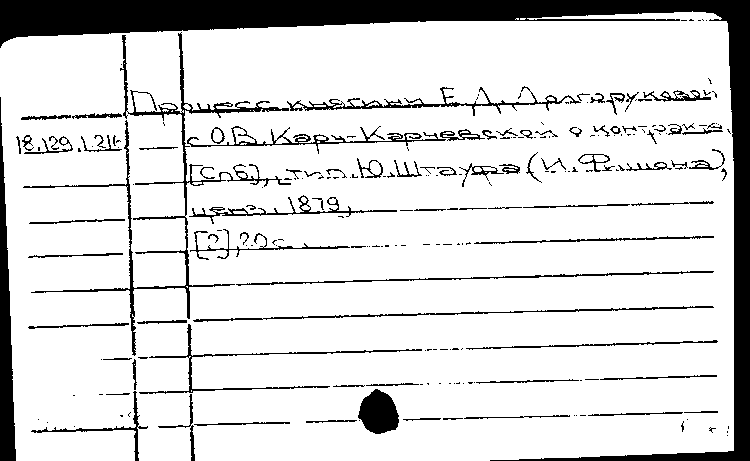 Процесс княгини Е.Д. Долгоруковой
18.129.1.216
с О.В. Карч-Карчевской о контракте.
[Спб], тип. Ю. Штауфа (И. Фишона),
ценз. 1879,
[2], 20 с.